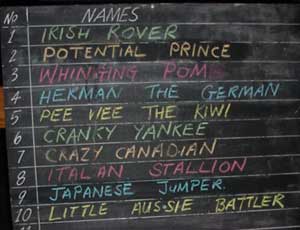 No NAMES
1 IRISH ROVER
2 POTENTIAL PRINCE
3 WHINGING POM
4 HERMAN THE GERMAN
5 PEE WEE THE KIWI
6 CRANKY YANKEE
7 CRAZY CANADIAN
8 ITALIAN STALLION
9 JAPANESE JUMPER.
10 LITTLE AUSSIE BATTLER